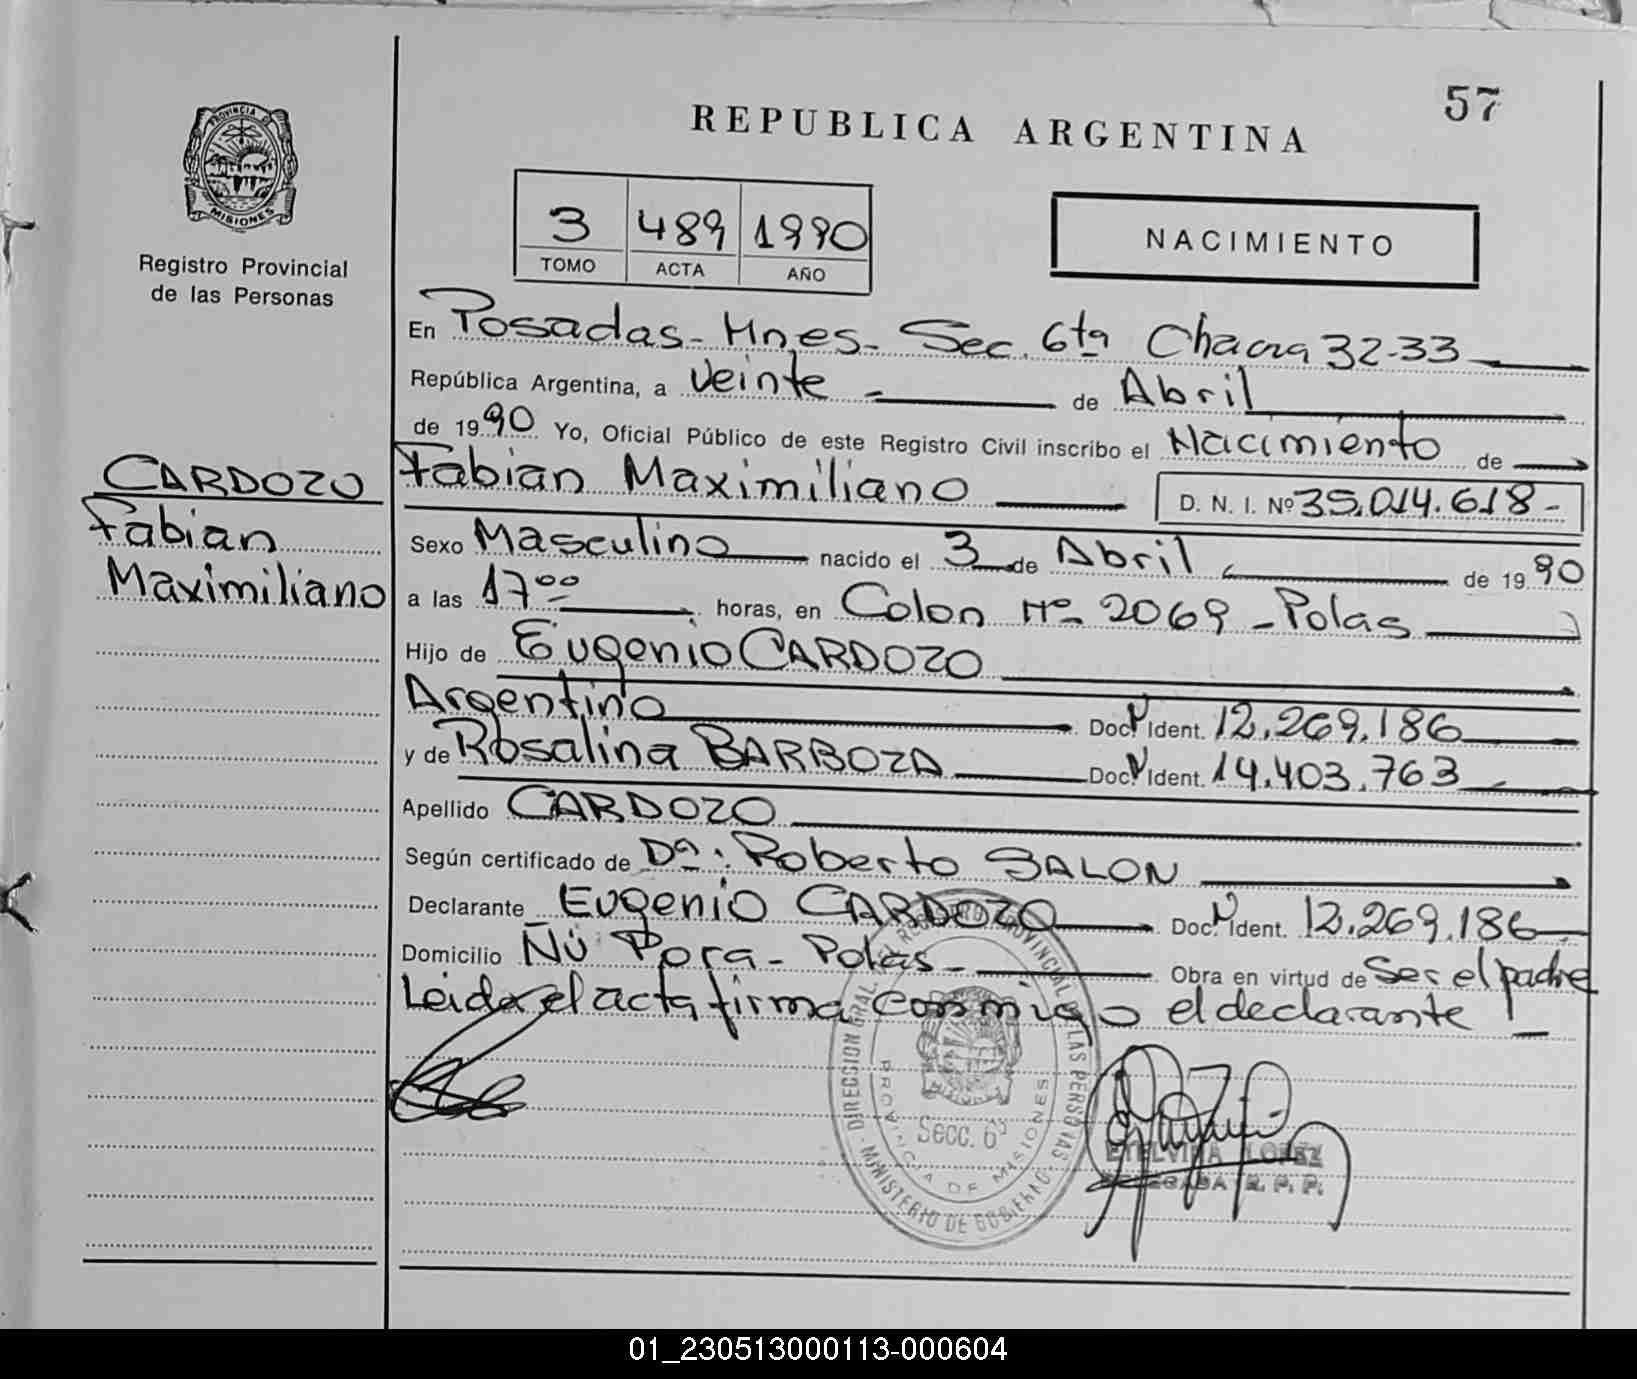 57
REPUBLICA ARGENTINA
PROVINCIA DE MISIONES
Registro Provincial
de las Personas
3 489 1990
TOMO ACTA AÑO
NACIMIENTO
En Posadas - Mnes - Sec. 6ta Chacra 32-33
República Argentina, a Veinte de Abril
de 1990 Yo, Oficial Público de este Registro Civil inscribo el Nacimiento de
CARDOZO
Fabian
Maximiliano
Fabian Maximiliano D. N. I. Nº 35.014.618-
Sexo Masculino nacido el 3 de Abril de 1990
a las 17⁰⁰ horas, en Colon Nº 2069 - Pdas
Hijo de Eugenio CARDOZO
Argentino Doc. Ident. 12.269.186
y de Rosalina BARBOZA Doc. Ident. 14.403.763
Apellido CARDOZO
Según certificado de Dª: Roberto SALON
Declarante Eugenio CARDOZO Doc. Ident. 12.269.186
Domicilio Ñú Pora - Pdas - Obra en virtud de Ser el padre
Leida el acta firma conmigo el declarante
DIRECCION GRAL. DEL REGISTRO PROVINCIAL DE LAS PERSONAS
MINISTERIO DE GOBIERNO
PROVINCIA DE MISIONES
Secc. 6ª
ETELVINA LOPEZ
DELEGADA R. P. P.
01_230513000113-000604